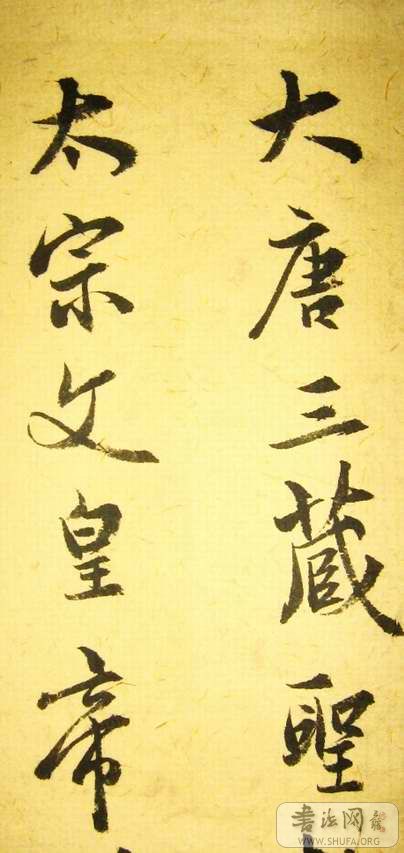 大唐三藏聖
太宗文皇帝
书法网
WWW.SHUFA.ORG